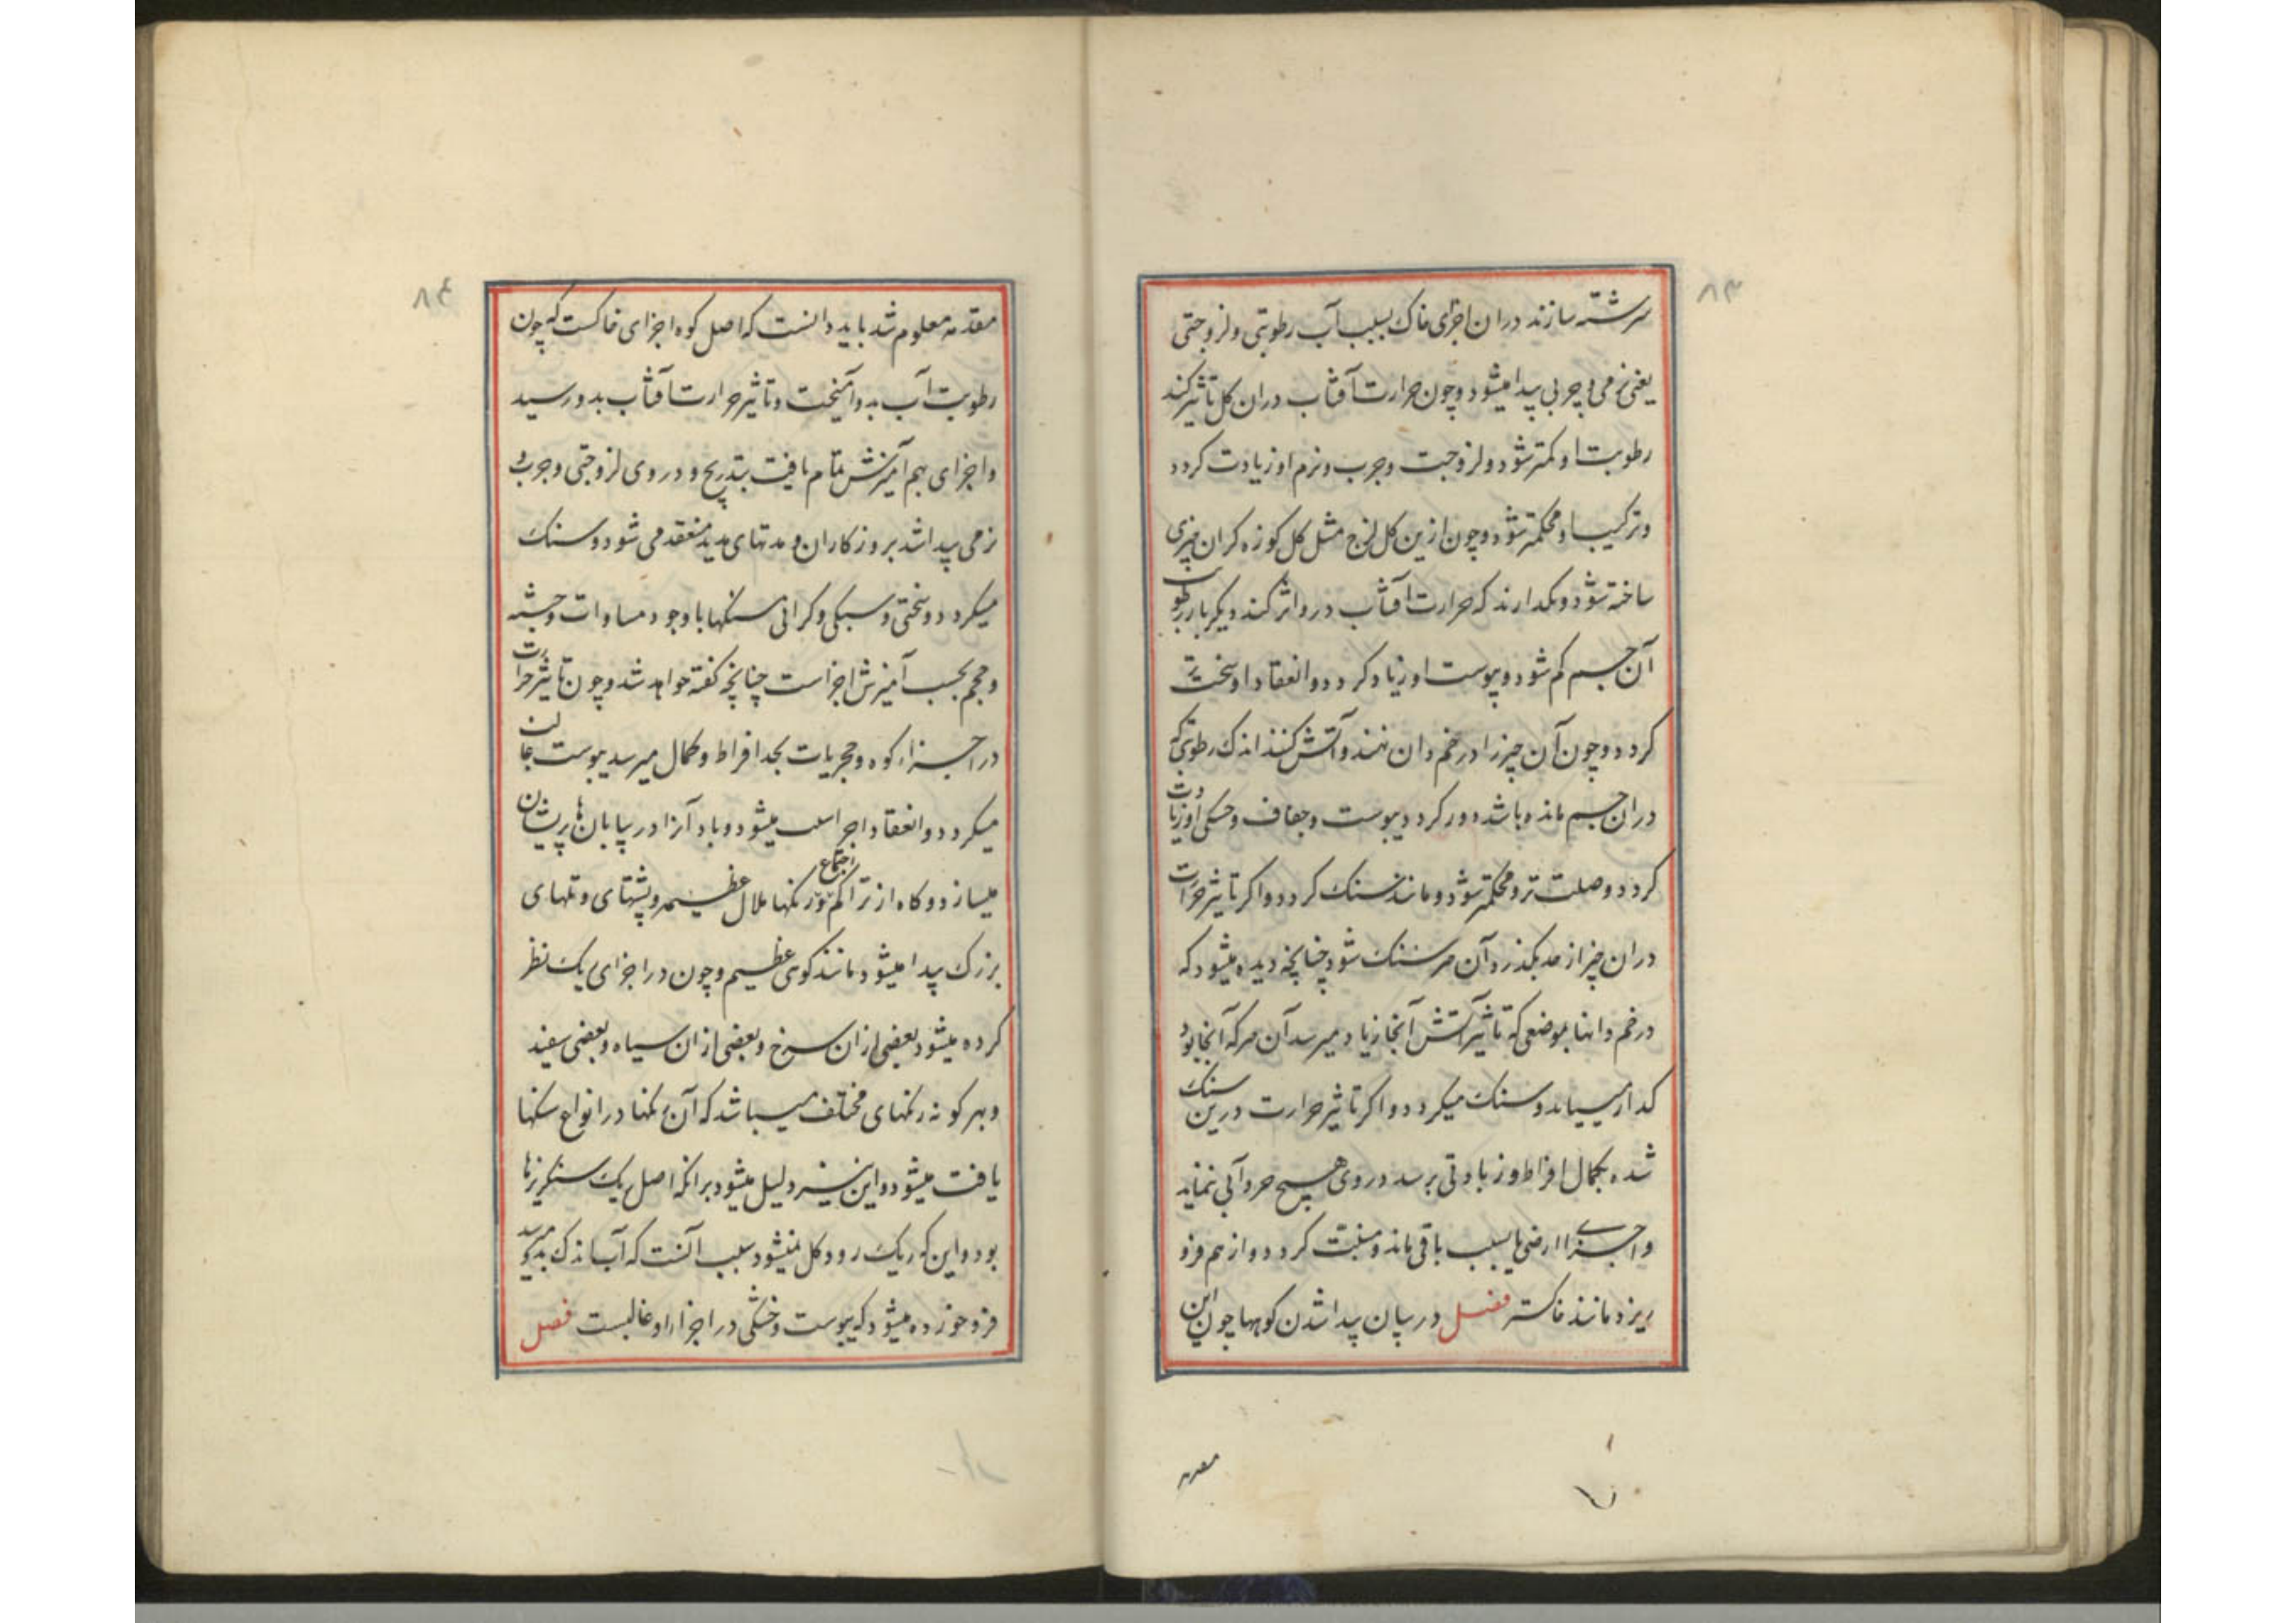 ۸۳
سرشته سازند دران اجزای خاک بسبب آب رطوبتی و لزوجتی
یعنی نرمی و چربی پیدا میشود و چون حرارت آفتاب دران کل تاثیر کند
رطوبت او کمتر شود و لزوجت و چرب و نرم او زیادت کردد
و ترکیب او محکمتر شود و چون ازین کل لزج مثل کل کوزه کران چیزی
ساخته شود و بکدارند که حرارت آفتاب درو اثر کند دیکر بار رطوبت
آن جسم کم شود و یبوست او زیاد کردد و انعقاد او سخت تر
کردد و چون آن چیز را در خم دان نهند و آتش کنند اندک رطوبتی که
دران جسم مانده باشد دور کردد یبوست و جفاف و خشکی او زیادت
کردد و صلت تر و محکمتر شود و مانند سنک کردد و اکر تاثیر حرارت
دران چیز از حد بکذرد آن سنک شود چنانچه دیده میشود که
در خم دانها بموضعی که تاثیر آتش آنجا زیاد میرسد آن هرکه آنجا بود
کدار سیاند و سنک میکردد و اکر تاثیر حرارت درین سنک
شده بکمال افراط و زیادتی برسد در وی هیچ حر و آبی نماند
و اجزای ارضی یابسب باقی ماند و کردد و از هم فرو
ریزد مانند خاکستر فصل در بیان پیدا شدن کوهها چون این
مقدمه
۸۴
مقدمه معلوم شد باید دانست که اصل کوه اجزای خاکست که چون
رطوبت آب بدو آمیخت و تاثیر حرارت آفتاب بدو رسید
و اجزای بهم آمیزش تمام یافت بتدریج و در وی لزوجتی و چربی و
نرمی پیدا شد بروزکاران و مدتهای مدید منعقد می شود و سنک
میکردد و سختی و سبکی و کرانی سنکها با وجود مساوات و جثه
و حجم بحسب آمیزش اجزاست چنانچه کفته خواهد شد و چون تاثیر حرارت
در اجزاء کوه و حجریات بحد افراط و کمال میرسد یبوست غالب
میکردد و انعقاد اجزا سلب میشود و باد آنرا در بیابان‌ها پریشان
میسازد و کاه از تراکم اجتماع تلال عظیم و پشتهای و تلهای
بزرک پیدا میشود مانند کوی عظیم و چون در اجزای یک نظر
کرده میشود بعضی ازان سرخ و بعضی ازان سیاه و بعضی سفید
و بهر کونه رنکهای مختلف میباشد که آن رنکها در انواع سنکها
یافت میشود و این نیز دلیل میشود برانکه اصل یک سنکریزها
بود و این که ریک رود کل نمیشود بسبب آنست که آب اندک بدو میرسد
فرو خورده میشود که یبوست و خشکی در اجزاء او غالبست فصل